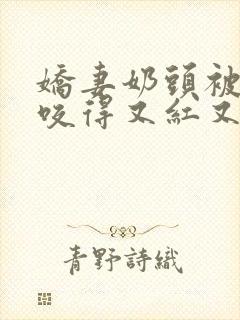 嬌妻奶頭被
咬得又紅又
青野詩織